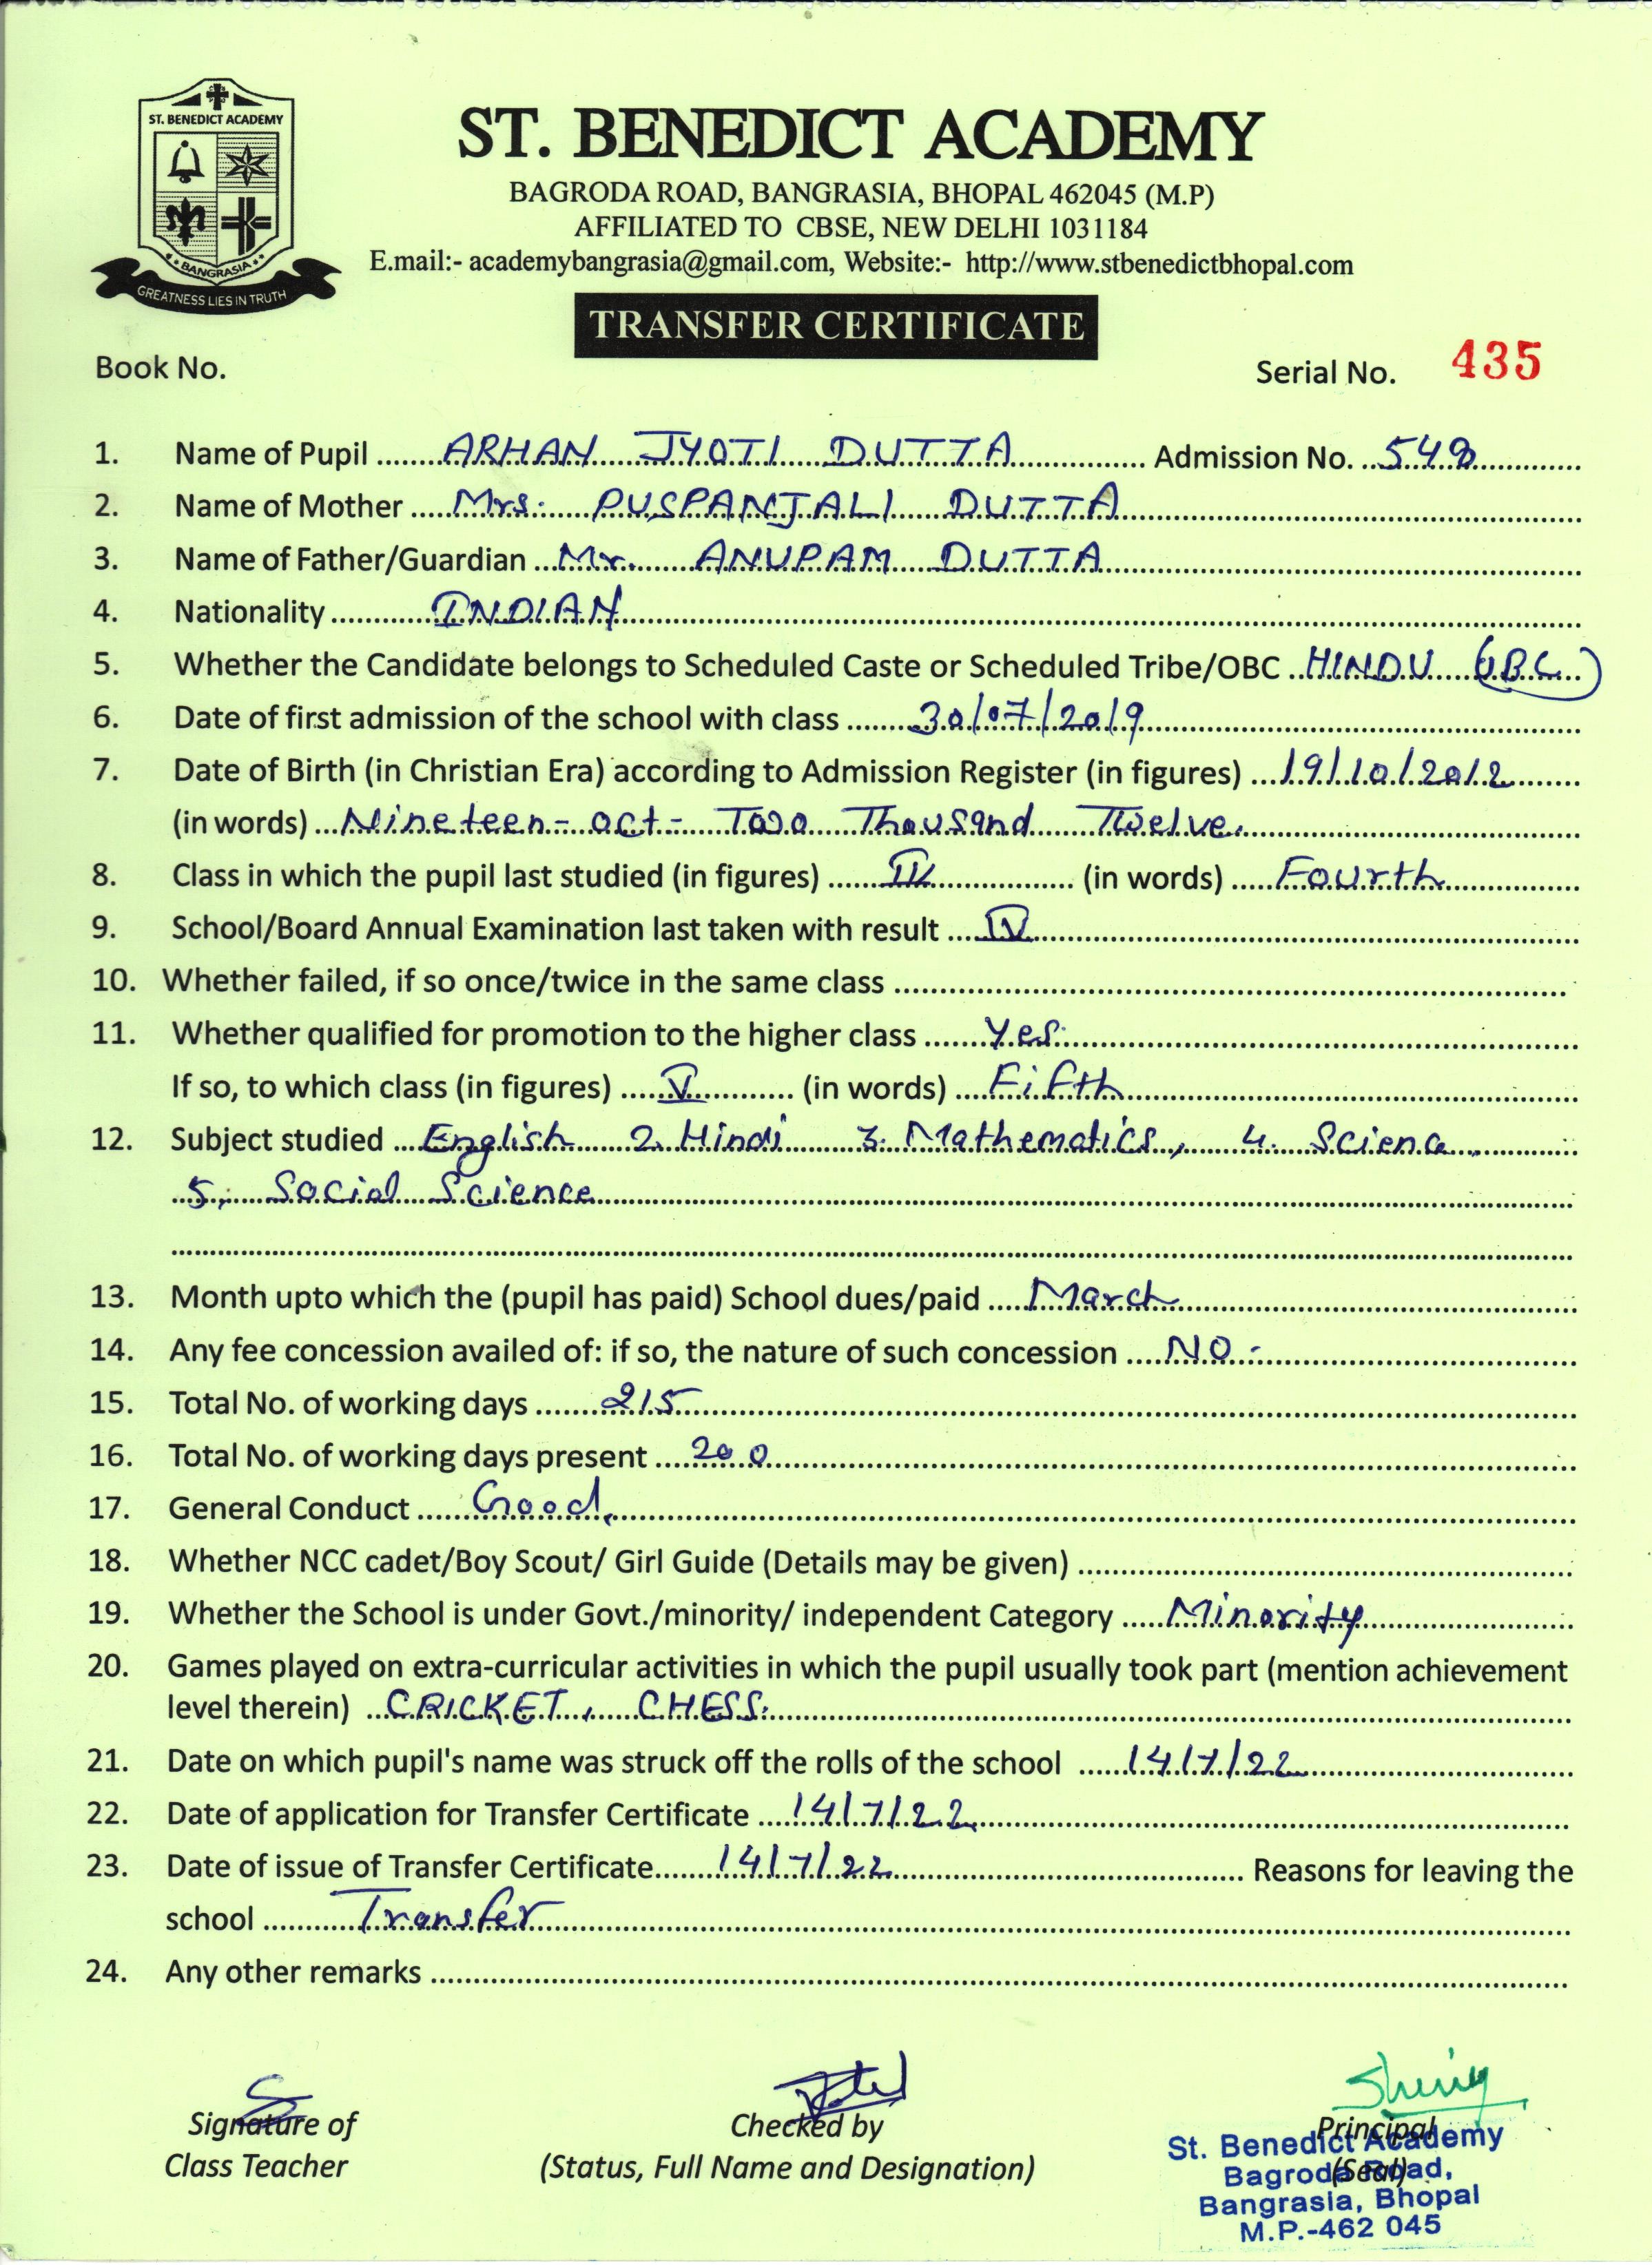 ST. BENEDICT ACADEMY
BANGRASIA
GREATNESS LIES IN TRUTH
ST. BENEDICT ACADEMY
BAGRODA ROAD, BANGRASIA, BHOPAL 462045 (M.P)
AFFILIATED TO CBSE, NEW DELHI 1031184
E.mail:- academybangrasia@gmail.com, Website:- http://www.stbenedictbhopal.com
TRANSFER CERTIFICATE
Book No. Serial No. 435
1. Name of Pupil ARHAN JYOTI DUTTA Admission No.
2. Name of Mother Mrs. PUSPANJALI DUTTA
3. Name of Father/Guardian Mr. ANUPAM DUTTA
4. Nationality INDIAN
5. Whether the Candidate belongs to Scheduled Caste or Scheduled Tribe/OBC HINDU (OBC)
6. Date of first admission of the school with class 30/07/2019
7. Date of Birth (in Christian Era) according to Admission Register (in figures) 19/10/2012
(in words) Nineteen-oct- Two Thousand Twelve.
8. Class in which the pupil last studied (in figures) IV (in words) Fourth
9. School/Board Annual Examination last taken with result IV
10. Whether failed, if so once/twice in the same class
11. Whether qualified for promotion to the higher class Yes.
If so, to which class (in figures) V (in words) Fifth
12. Subject studied English 2. Hindi 3. Mathematics, 4. Science
5, Social Science
13. Month upto which the (pupil has paid) School dues/paid March
14. Any fee concession availed of: if so, the nature of such concession NO -
15. Total No. of working days 215
16. Total No. of working days present 200
17. General Conduct Good,
18. Whether NCC cadet/Boy Scout/ Girl Guide (Details may be given)
19. Whether the School is under Govt./minority/ independent Category Minority
20. Games played on extra-curricular activities in which the pupil usually took part (mention achievement
level therein) CRICKET, CHESS.
21. Date on which pupil's name was struck off the rolls of the school 14/7/22
22. Date of application for Transfer Certificate 14/7/22
23. Date of issue of Transfer Certificate 14/7/22 Reasons for leaving the
school Transfer
24. Any other remarks
Signature of Checked by Principal
Class Teacher (Status, Full Name and Designation) (Seal)
St. Benedict Academy
Bagroda Road,
Bangrasia, Bhopal
M.P.-462 045